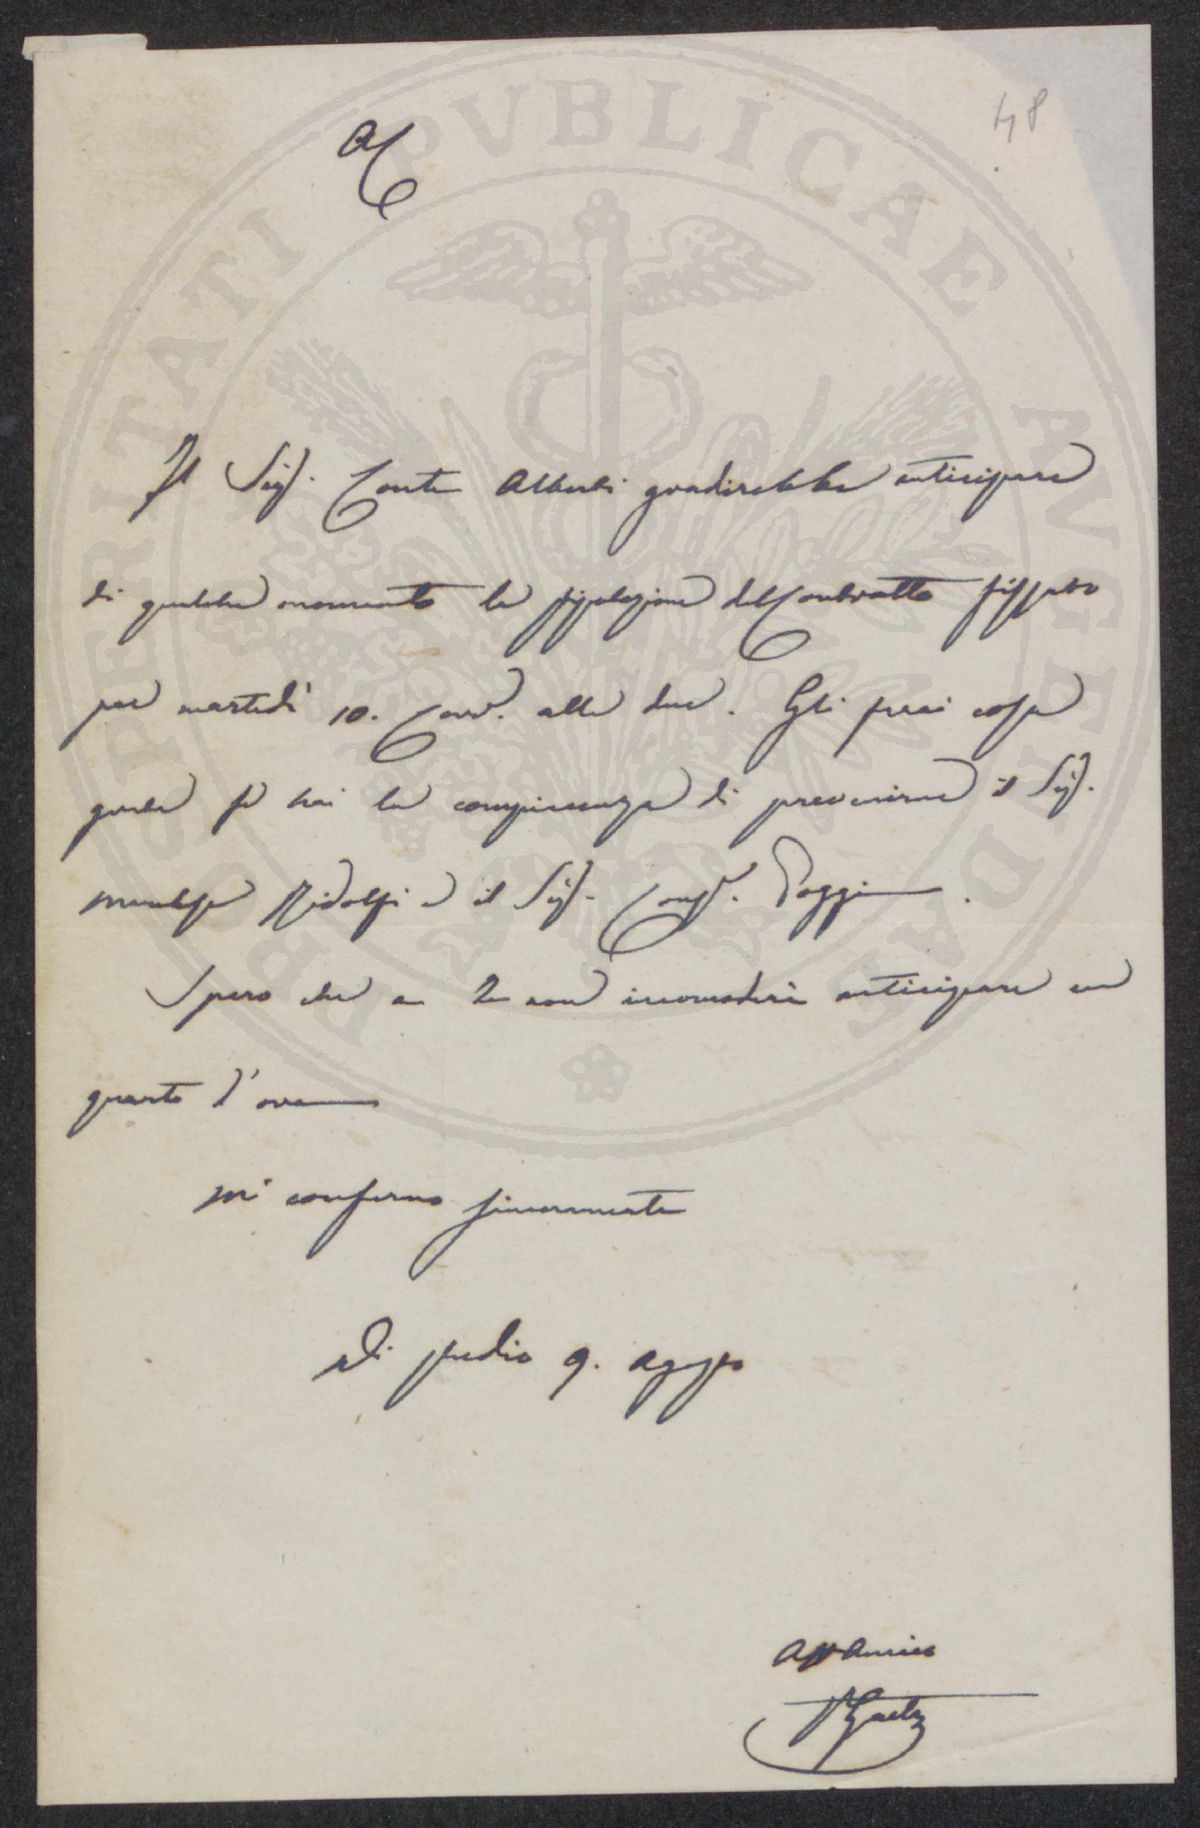 48
AC
Il Sig.r Conte Alberti gradirebbe anticipare
di qualche momento la stipulazione del Contratto fissato
per martedì 10. Corr. alle due. Gli farai cosa
grata se hai la compiacenza di prevenirne il Sig.
March.se Ridolfi e il Sig. Cons. Poggi.
Spero che a Te non incomoderà anticipare un
quarto d'ora
Mi confermo sinceramente
Di studio 9. Agosto
Aff Amico
PROSPERITATI PVBLICAE AVGENDAE